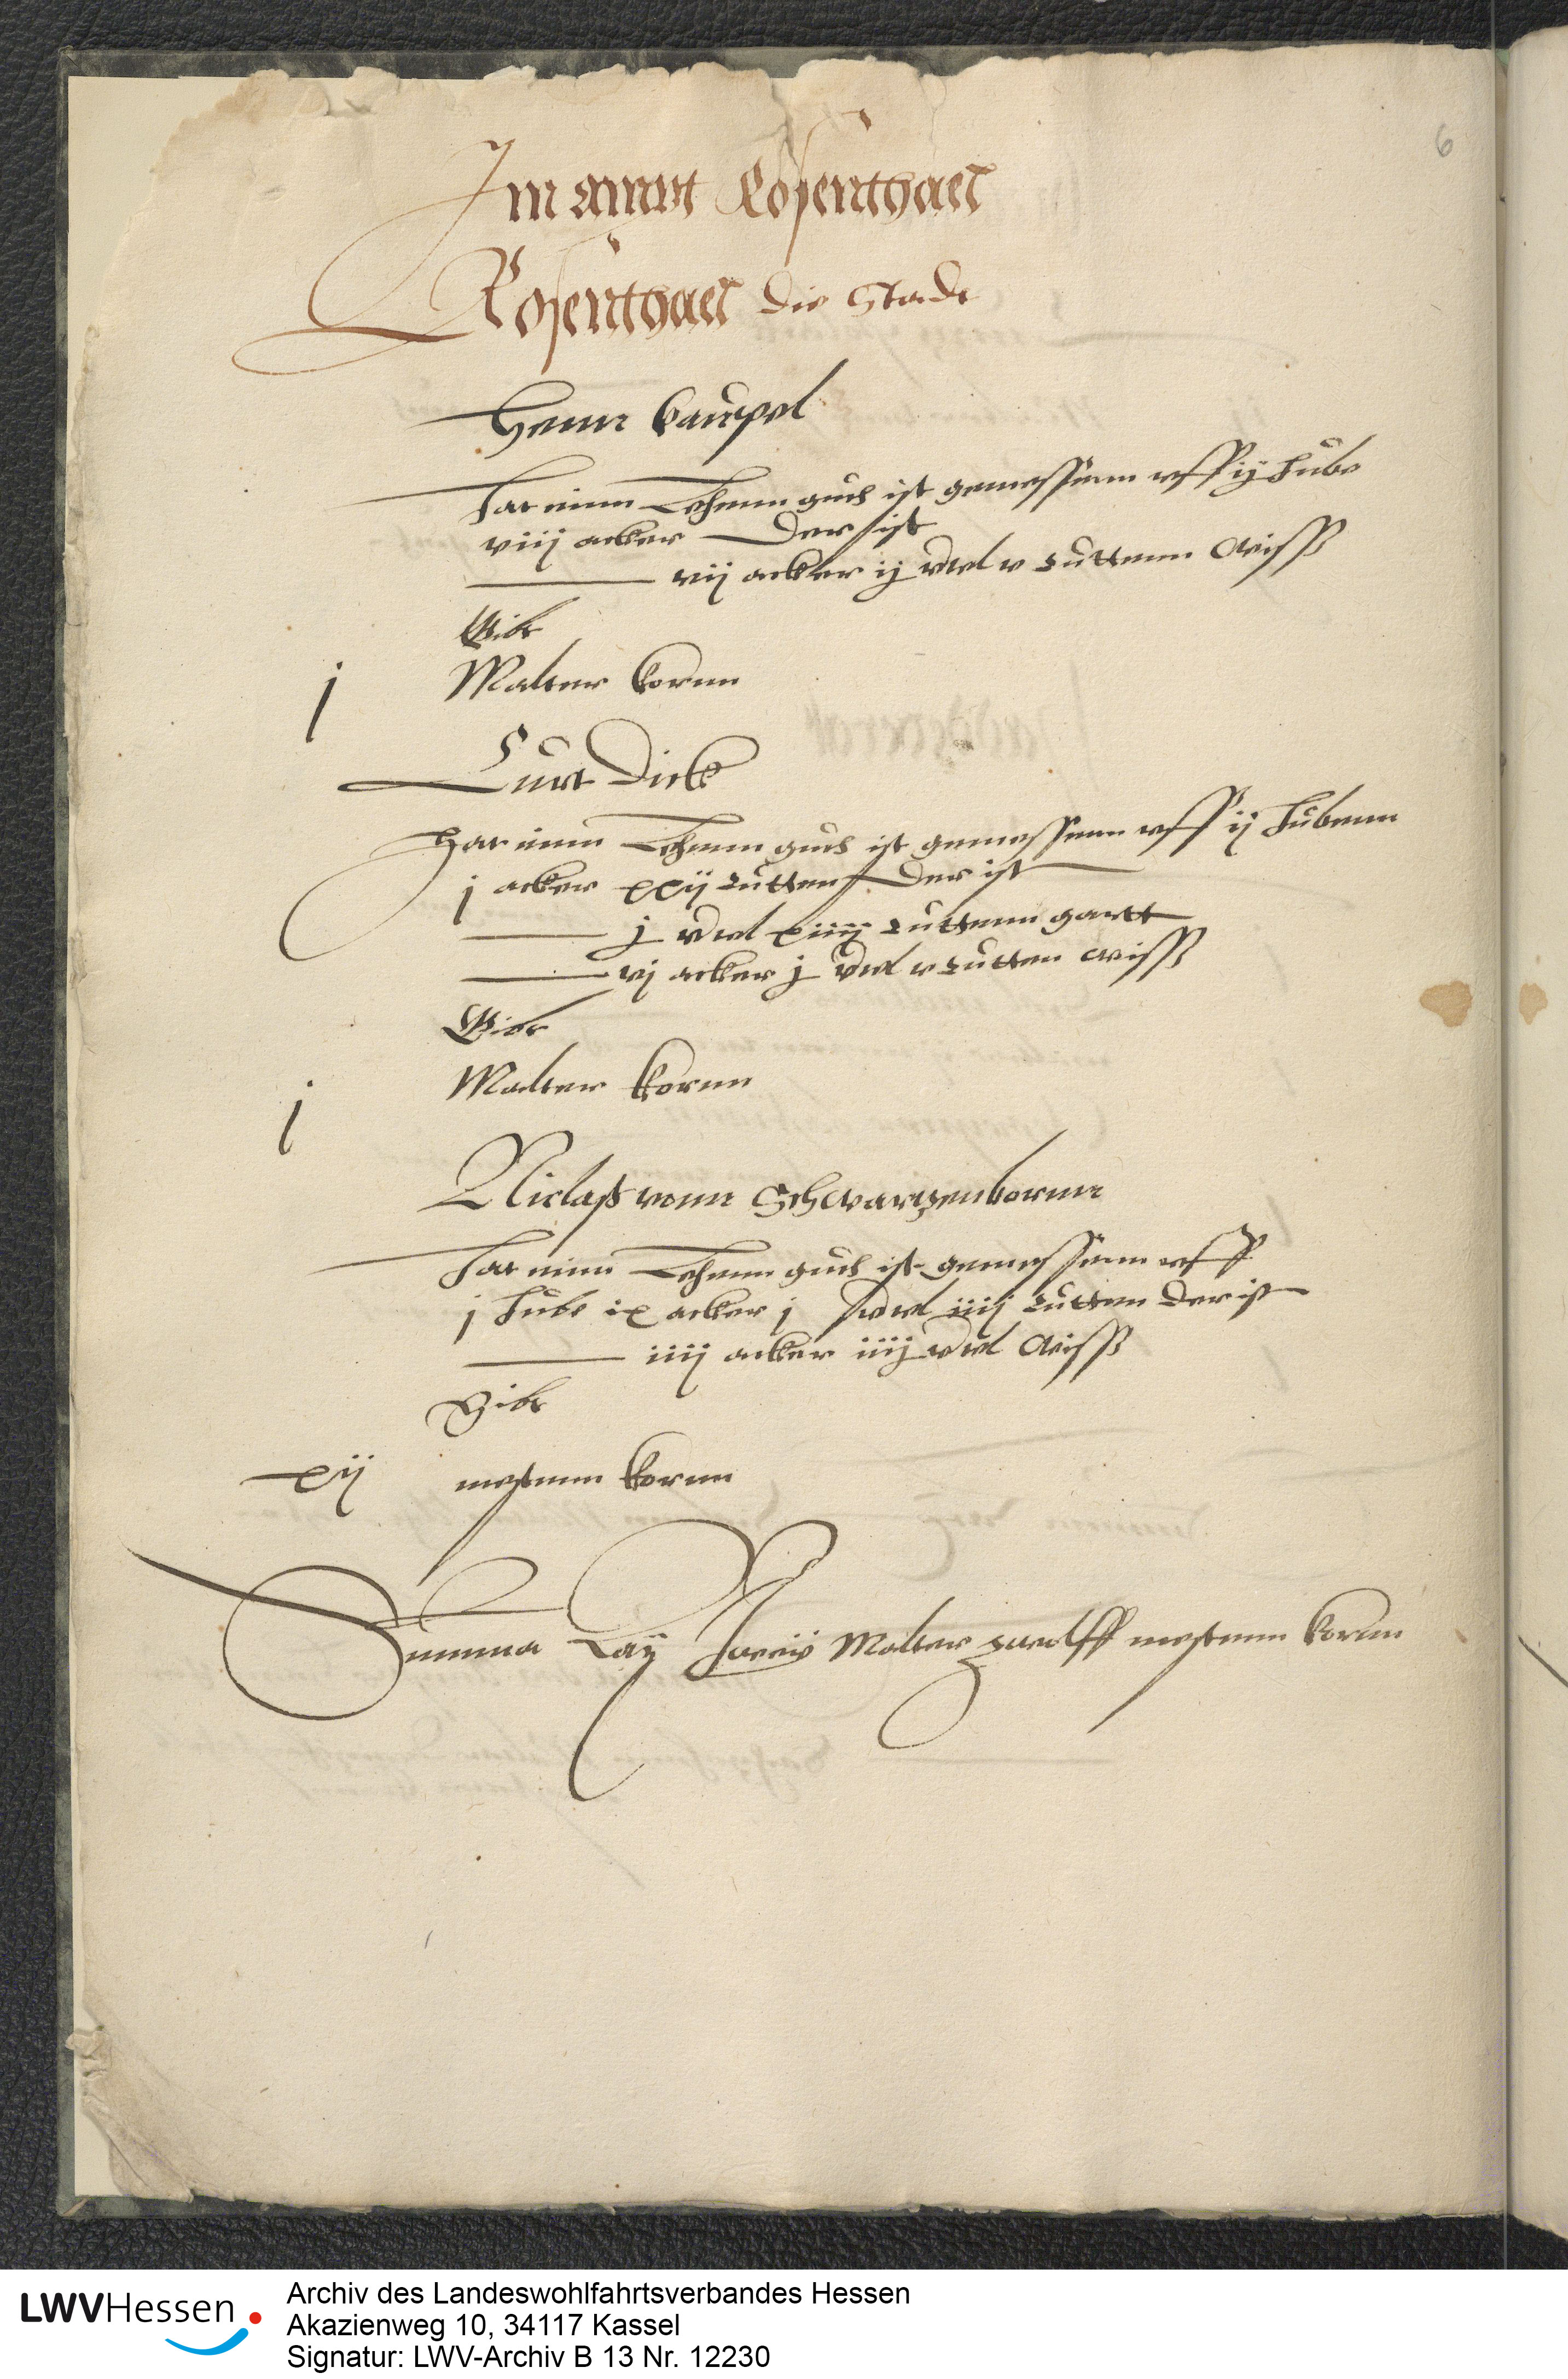 6
Im ampt Rosenthael
Rosenthael die Stadt
Henn Kaupel
Hat einn Lehenn guth ist gemessenn uff ij hube
viij acker Der ist
vij acker ij virtel v ruttenn Wiess
Gibt
j Malter Kornn
Curt Dick
Hat einn Lehenn guth ist gemessenn uff ij hubenn
j acker xxij rutten Der ist
j virtel xiiij ruttenn gartt
vj acker j virtel v rutten wiess
Gibt
j Malter Kornn
Niclaß vonn Schwartzenbornn
Hat einn Lehenn guth ist gemessenn uff
j hube ix acker j virtel iiij rutten Der ist
iiij acker iij virtel Wiess
Gibt
xij mestenn Kornn
Summa Malter zwolff mestenn Kornn
LWVHessen
Archiv des Landeswohlfahrtsverbandes Hessen
Akazienweg 10, 34117 Kassel
Signatur: LWV-Archiv B 13 Nr. 12230